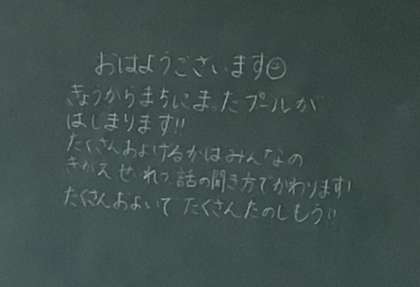 おはようございます☺
きょうからまちにまったプールが
はじまります!!
たくさんおよげるかはみんなの
きがえ せいれつ 話の聞き方でかわります!
たくさんおよいで たくさんたのしもう!!